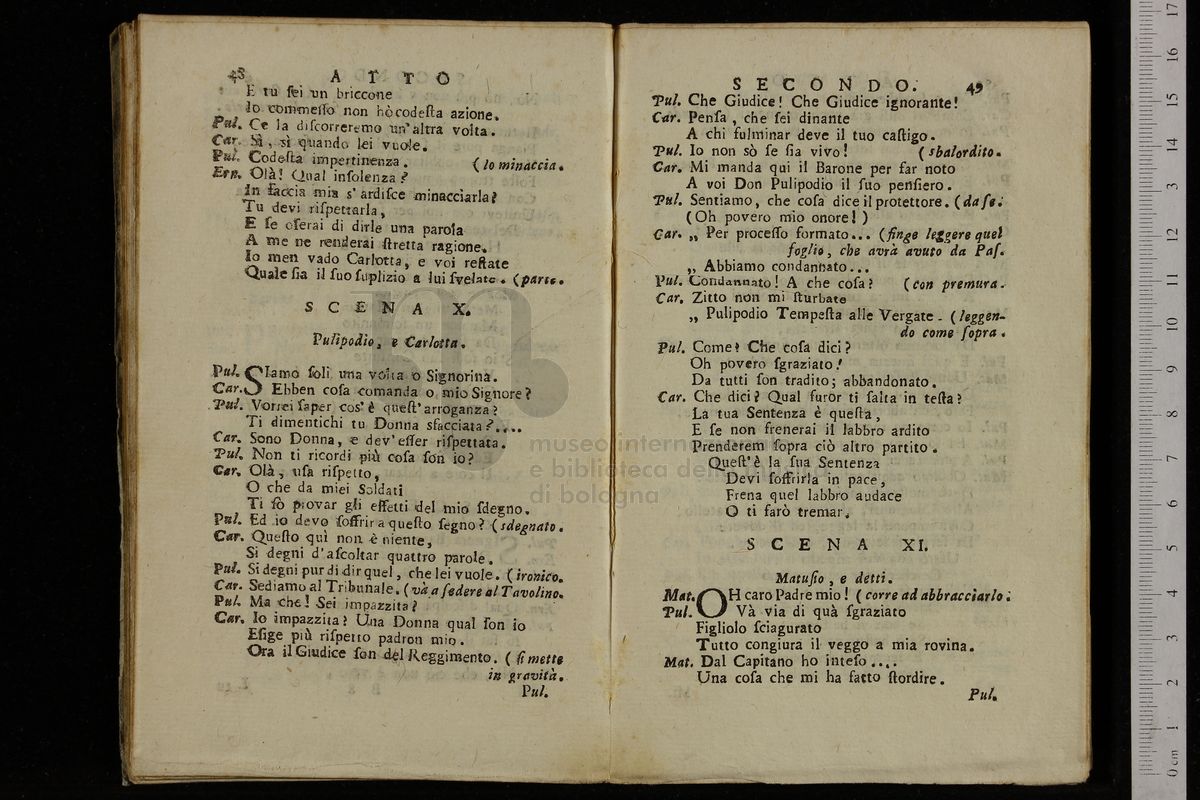 48 ATTO
E tu sei un briccone
Io commesso non hò codesta azione.
Pul. Ce la discorreremo un'altra volta.
Car. Sì, sì quando lei vuole.
Pul. Codesta impertinenza. (lo minaccia.
Ern. Olà! Qual insolenza?
In faccia mia s'ardisce minacciarla?
Tu devi rispettarla,
E se oserai di dirle una parola
A me ne renderai stretta ragione.
Io men vado Carlotta, e voi restate
Quale sia il suo suplizio a lui svelate. (parte.
SCENA X.
Pulipodio, e Carlotta.
Pul. SIamo soli una volta o Signorina.
Car. Ebben cosa comanda o mio Signore?
Pul. Vorrei saper cos'è quest'arroganza?
Ti dimentichi tu Donna sfacciata?....
Car. Sono Donna, e dev'esser rispettata.
Pul. Non ti ricordi più cosa son io?
Car. Olà, usa rispetto,
O che da miei Soldati
Ti fò provar gli effetti del mio sdegno.
Pul. Ed io devo soffrir a questo segno? (sdegnato.
Car. Questo quì non è niente,
Si degni d'ascoltar quattro parole.
Pul. Si degni pur di dir quel, che lei vuole. (ironico.
Car. Sediamo al Tribunale. (và a sedere al Tavolino.
Pul. Ma che! Sei impazzita?
Car. Io impazzita? Una Donna qual son io
Esige più rispetto padron mio.
Ora il Giudice son del Reggimento. (si mette
in gravità.
Pul.
SECONDO. 49
Pul. Che Giudice! Che Giudice ignorante!
Car. Pensa, che sei dinante
A chi fulminar deve il tuo castigo.
Pul. Io non sò se sia vivo! (sbalordito.
Car. Mi manda qui il Barone per far noto
A voi Don Pulipodio il suo pensiero.
Pul. Sentiamo, che cosa dice il protettore. (da se.
(Oh povero mio onore!)
Car. „ Per processo formato... (finge leggere quel
foglio, che avrà avuto da Pas.
„ Abbiamo condannato...
Pul. Condannato! A che cosa? (con premura.
Car. Zitto non mi sturbate
„ Pulipodio Tempesta alle Vergate. (leggen-
do come sopra.
Pul. Come? Che cosa dici?
Oh povero sgraziato!
Da tutti son tradito; abbandonato.
Car. Che dici? Qual furor ti salta in testa?
La tua Sentenza è questa,
E se non frenerai il labbro ardito
Prenderem sopra ciò altro partito.
Quest'è la sua Sentenza
Devi soffrirla in pace,
Frena quel labbro audace
O ti farò tremar.
SCENA XI.
Matusio, e detti.
Mat. OH caro Padre mio! (corre ad abbracciarlo.
Pul. Và via di quà sgraziato
Figliolo sciagurato
Tutto congiura il veggo a mia rovina.
Mat. Dal Capitano ho inteso....
Una cosa che mi ha fatto stordire.
Pul.
museo internazionale
e biblioteca della musica
di bologna
0 cm 1 2 3 4 5 6 7 8 9 10 11 12 13 14 15 16 17